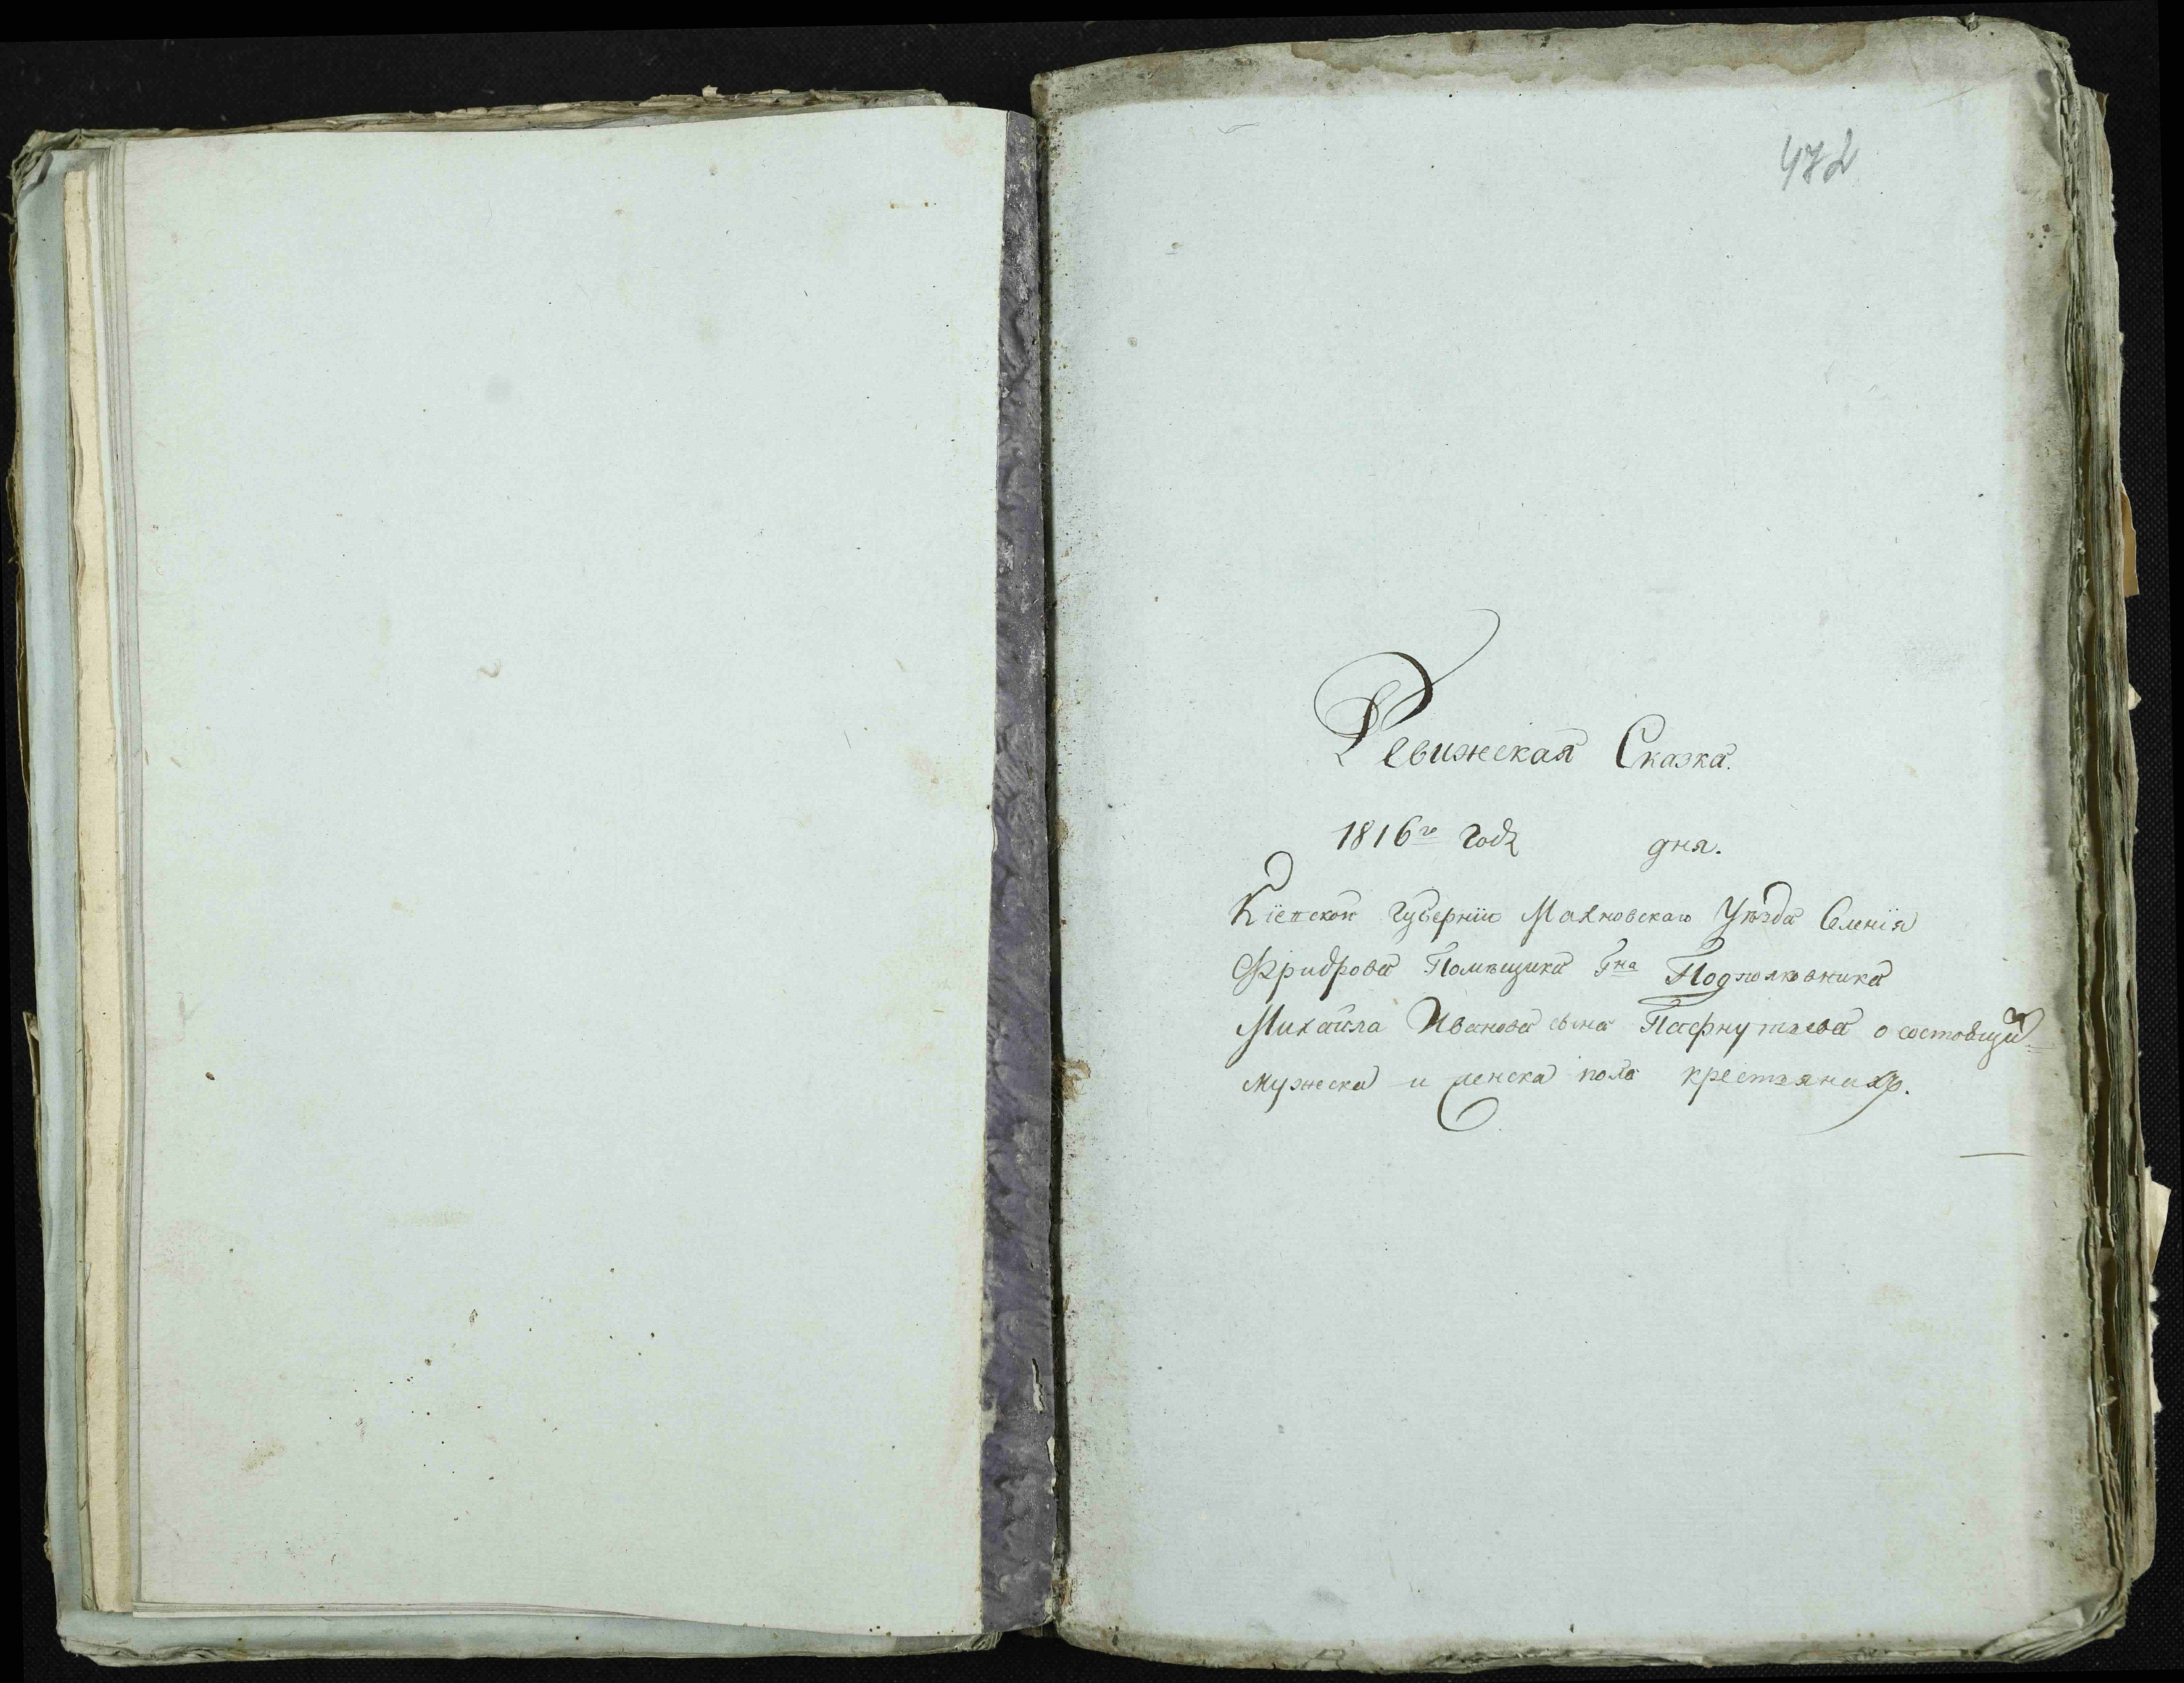 472
Ревижская Сказка.
1816го года дня.
Кіевской Губерніи Махновскаго Уѣзда Селенія
Фридрова Помѣщика Гна Подполковника
Михаила Иванова сына Пафнутьева о состоящи=
мужеска и женска пола крестьянахъ.